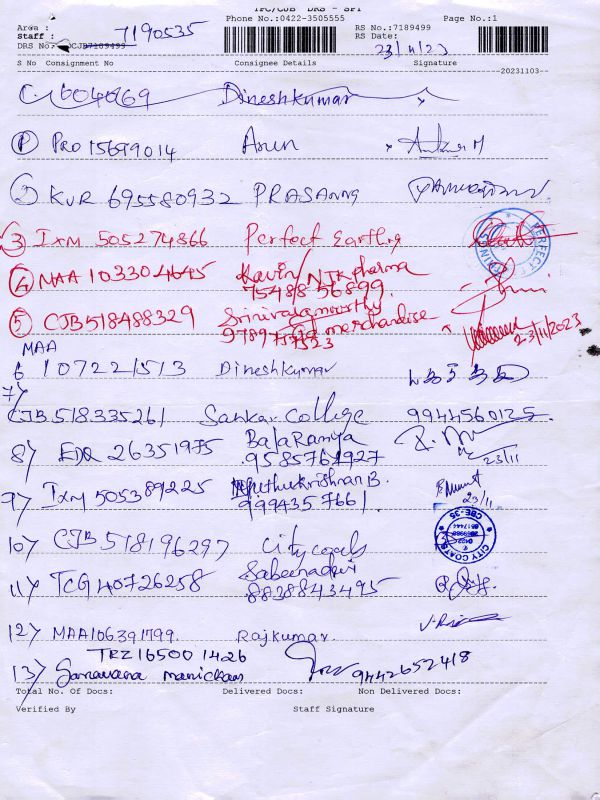 TPC/CJB DRS - SPT
Phone No.:0422-3505555 Page No.:1
Area : 7190535 RS No.:7189499
Staff : RS Date: 23/11/23
DRS No: CJB7189499
S No Consignment No Consignee Details Signature
--20231103--
Dineshkumar
① PRO 15699014 Arun
② KVR 695580932 PRASANNA
③ IXM 505274866 Perfect Earthing
④ MAA 103304645 Kavin/NTK pharma
75488 56899
⑤ CJB518488329 Srinivasamoorthy
merchandise
23/11/2023
MAA
6 107221513 Dineshkumar
7)
CJB 518335261 Sankar College 9944560125
8) EDQ 26351975 BalaRamya
9585761927
23/11
9) IXM 505389225 Muthukrishnan B.
9994357661
23/11
10) CJB 518196297 City coats
CITY COATS
CBE-35
11) TCG 40726258 Sabeenadevi
88388 43495
12) MAA106391799 Rajkumar
TRZ 165001426
13) Saravana manickam 9442652418
Total No. Of Docs: Delivered Docs: Non Delivered Docs:
Verified By Staff Signature